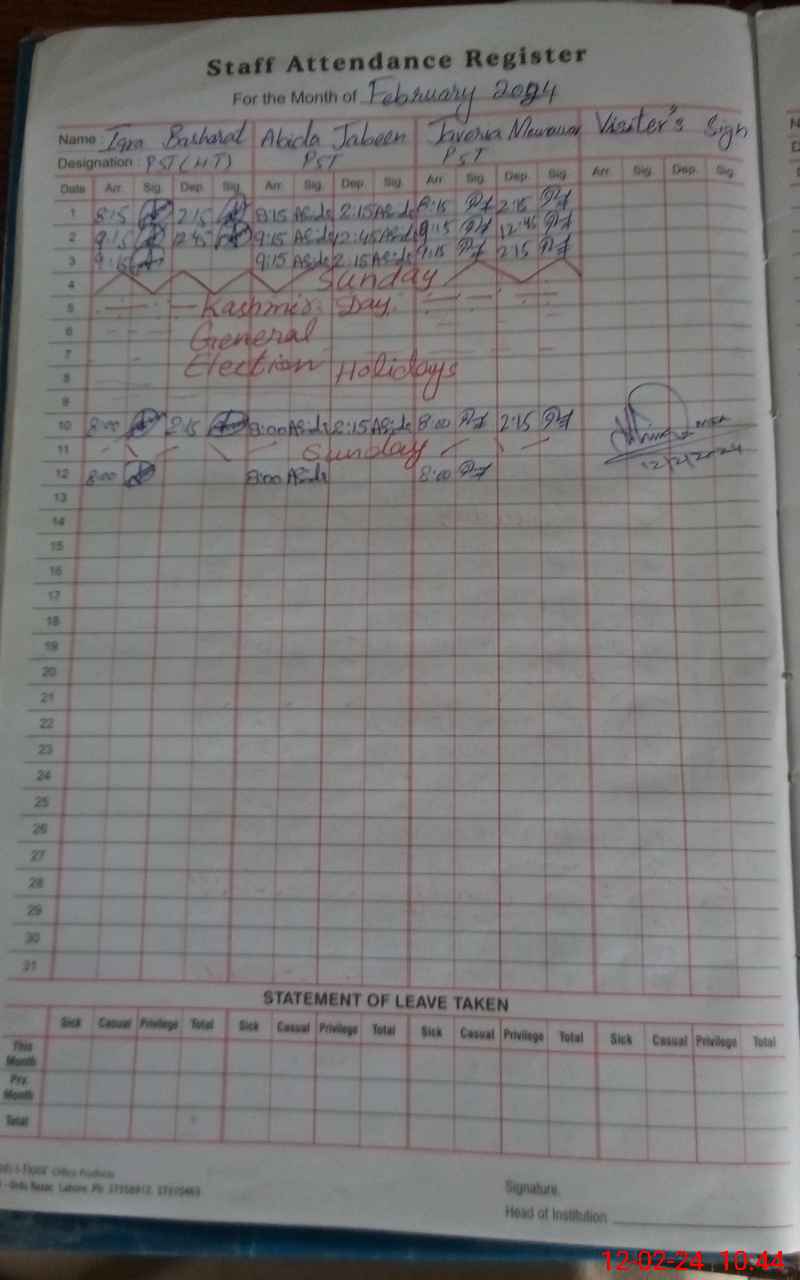 Staff Attendance Register
For the Month of February 2024
Name Iqra Basharat Abida Jabeen Javeria Visiter's Sign
Designation : PST (HT) PST PST
Date Arr. Sig. Dep. Sig. Arr. Sig. Dep. Sig. Arr. Sig. Dep. Sig. Arr. Sig. Dep. Sig.
1 8:15 2:15 8:15 2:15 8:15 2:15
2 9:15 12:45 9:15 12:45 9:15 12:45
3 9:15 9:15 2:15 9:15 2:15
4 Sunday
5 Kashmir Day
6 General
7
8 Election Holidays
9
10 8:00 2:15 8:00 2:15 8:00 2:15
11 Sunday
12 8:00 8:00 8:00 12/2/2024
13
14
15
16
17
18
19
20
21
22
23
24
25
26
27
28
29
30
31
STATEMENT OF LEAVE TAKEN
Sick Casual Privilege Total Sick Casual Privilege Total Sick Casual Privilege Total Sick Casual Privilege Total
This Month
Prv. Month
Total
Office Products
Urdu Bazar, Lahore. Ph:
Signature
Head of Institution
12-02-24 10:44